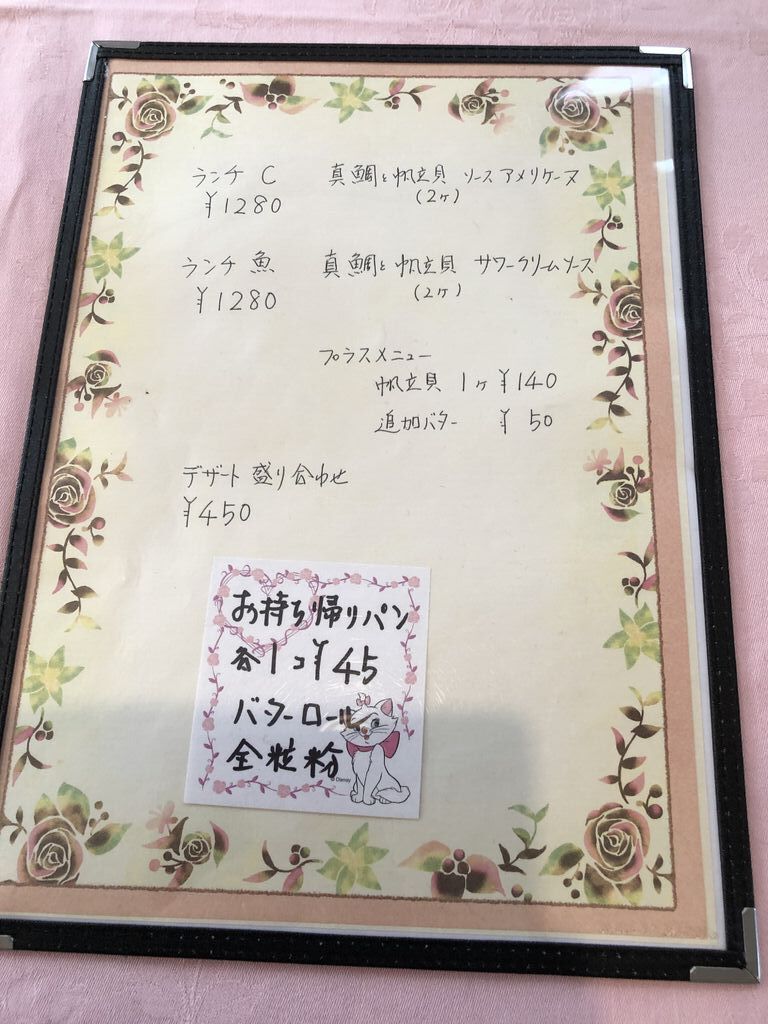 ランチ C 真鯛と帆立貝 ソースアメリケーヌ
¥1280 (2ヶ)
ランチ 魚 真鯛と帆立貝 サワークリームソース
¥1280 (2ヶ)
プラスメニュー
帆立貝 1ヶ ¥140
追加バター ¥ 50
デザート 盛り合わせ
¥450
お持ち帰りパン
各1コ¥45
バターロール
全粒粉
© Disney